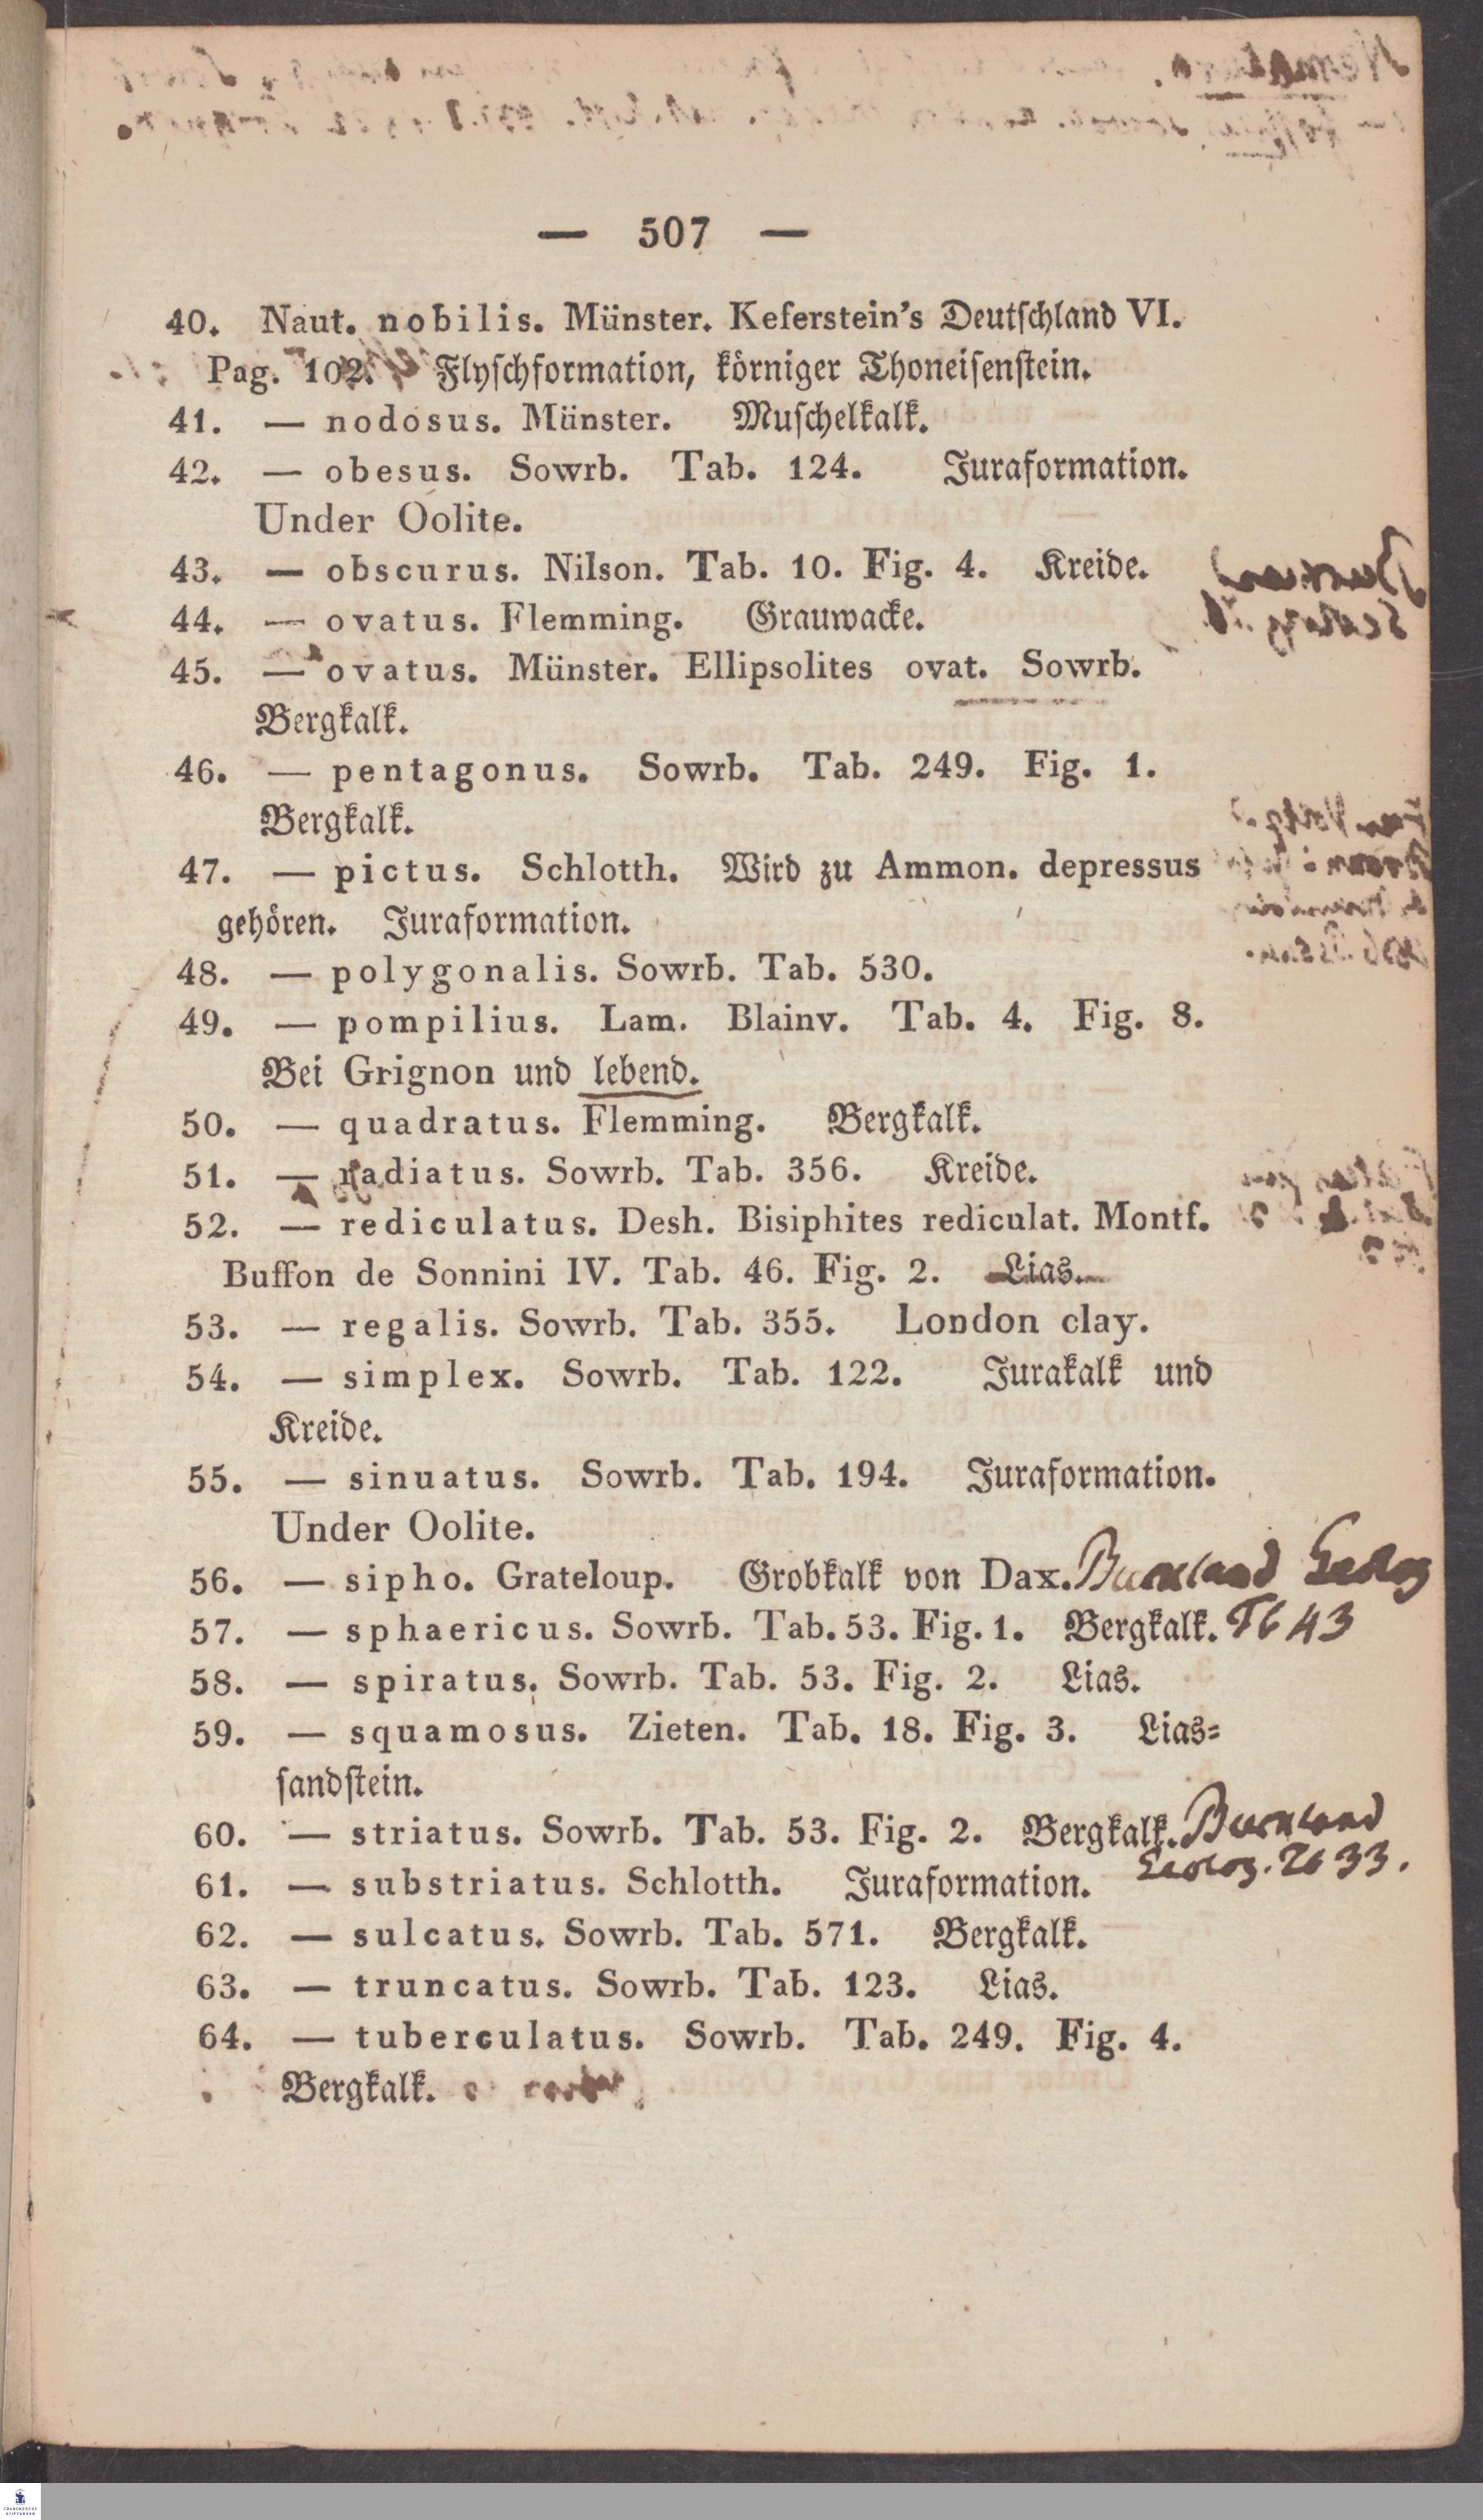 — 507 —
40. Naut. nobilis. Münster. Keferstein's Deutschland VI.
Pag. 102. Flyschformation, körniger Thoneisenstein.
41. — nodosus. Münster. Muschelkalk.
42. — obesus. Sowrb. Tab. 124. Juraformation.
Under Oolite.
43. — obscurus. Nilson. Tab. 10. Fig. 4. Kreide.
44. — ovatus. Flemming. Grauwacke.
45. — ovatus. Münster. Ellipsolites ovat. Sowrb.
Bergkalk.
46. — pentagonus. Sowrb. Tab. 249. Fig. 1.
Bergkalk.
47. — pictus. Schlotth. Wird zu Ammon. depressus
gehören. Juraformation.
48. — polygonalis. Sowrb. Tab. 530.
49. — pompilius. Lam. Blainv. Tab. 4. Fig. 8.
Bei Grignon und lebend.
50. — quadratus. Flemming. Bergkalk.
51. — radiatus. Sowrb. Tab. 356. Kreide.
52. — rediculatus. Desh. Bisiphites rediculat. Montf.
Buffon de Sonnini IV. Tab. 46. Fig. 2. Lias.
53. — regalis. Sowrb. Tab. 355. London clay.
54. — simplex. Sowrb. Tab. 122. Jurakalk und
Kreide.
55. — sinuatus. Sowrb. Tab. 194. Juraformation.
Under Oolite.
56. — sipho. Grateloup. Grobkalk von Dax. Buckland Geolog
57. — sphaericus. Sowrb. Tab. 53. Fig. 1. Bergkalk. Tb 43
58. — spiratus. Sowrb. Tab. 53. Fig. 2. Lias.
59. — squamosus. Zieten. Tab. 18. Fig. 3. Lias-
sandstein.
60. — striatus. Sowrb. Tab. 53. Fig. 2. Bergkalk. Buckland
Geolog. Tb 33.
61. — substriatus. Schlotth. Juraformation.
62. — sulcatus. Sowrb. Tab. 571. Bergkalk.
63. — truncatus. Sowrb. Tab. 123. Lias.
64. — tuberculatus. Sowrb. Tab. 249. Fig. 4.
Bergkalk.
FRANCKESCHE
STIFTUNGEN